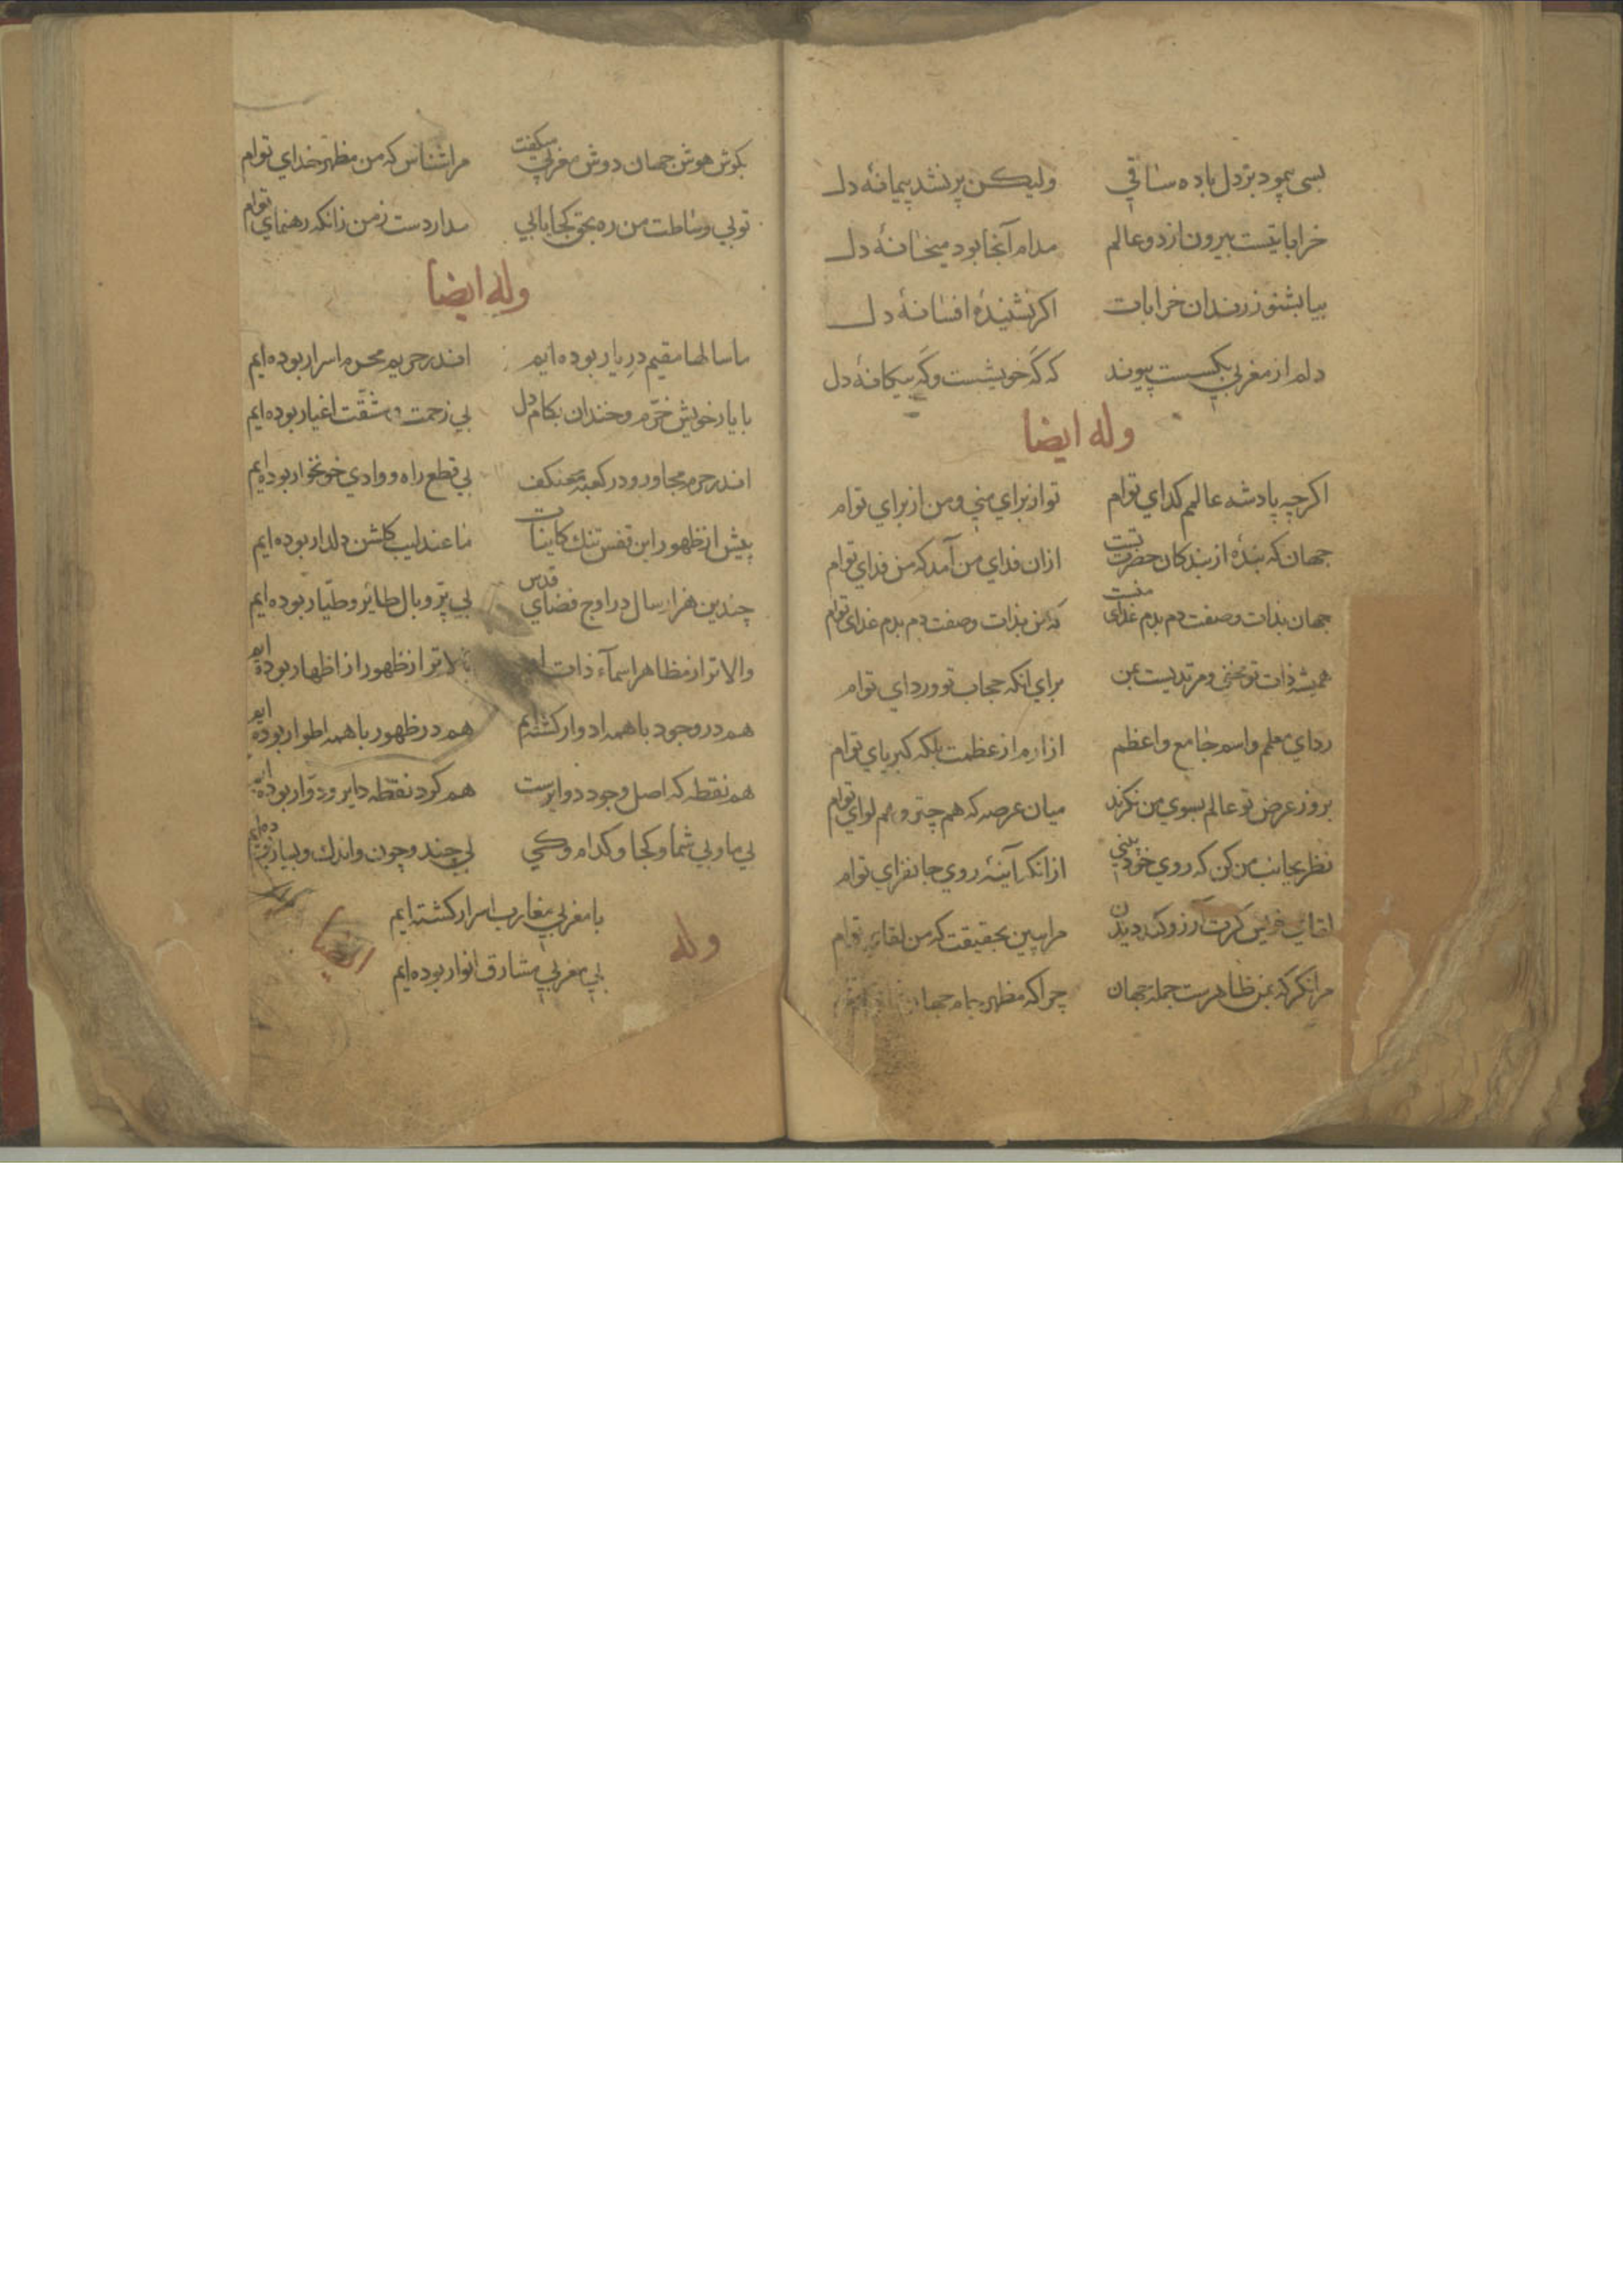 بسی پیمود بر دل باده ساقی ولیکن پر نشد پیمانهٔ دل
خراباتیست بیرون از دو عالم مدام آنجا بود میخانهٔ دل
بیا بشنو ز رندان خرابات اکر نشنیدهٔ افسانهٔ دل
دلم از مغربی بکسست پیوند که که خویشست و که بیکانهٔ دل
وله ایضا
اکرچه پادشه عالمم کدای توام تو از برای منی و من از برای توام
جهان که بندهٔ از بندکان حضرت تست ازان فدای من آمد که من فدای توام
جهان بذات و صفت دم بدم غذای منست که من بذات و صفت دم بدم غذای توام
همیشه ذات تو مخفی و مرتدیست بمن برای انکه حجاب تو و ردای توام
ردای معلم و اسم جامع و اعظم ازارم از عظمت بلکه کبریای توام
بروز عرض تو عالم بسوی من نکرند میان عرصه که هم چتر و هم لوای توام
نظر بجانب من کن که روی خود بینی ازانکه آینهٔ روی جانفزای توام
لقای خویش کرت آرزو کند دیدن مرا ببین بحقیقت که من لقای توام
مرا نکر که بمن ظاهرست جمله جهان چرا که مظهر جام جهان
بکوش هوش جهان دوش مغربی میکفت مرا شناس که من مظهر خدای توام
تو بی وساطت من ره بحق کجا یابی مدار دست ز من زانکه رهنمای توام
وله ایضا
ما سالها مقیم در یار بوده ایم اندر حریم محرم اسرار بوده ایم
با یار خویش خرّم و خندان بکام دل بی زحمت و مشقّت اغیار بوده ایم
اندر حرم مجاور و در کعبه معتکف بی قطع راه و وادی خونخوار بوده ایم
پیش از ظهور این قفس تنک کاینات ما عندلیب کلشن دلدار بوده ایم
چندین هزار سال در اوج فضای قدس بی پرّ و بال طائر و طیّار بوده ایم
والاتر از مظاهر اسمآء ذات او بالاتر از ظهور از اظهار بوده ایم
هم در وجود با همه ادوار کشته ایم هم در ظهور با همه اطوار بوده ایم
هم نقطه که اصل وجود دوایرست هم کرد نقطه دایر و دوّار بوده ایم
بی ما و بی شما و کجا و کدام و کی بی چند و چون و اندک و بسیار بوده ایم
با مغربی مغارب اسرار کشته ایم
بی مغربی مشارق انوار بوده ایم
وله ایضا